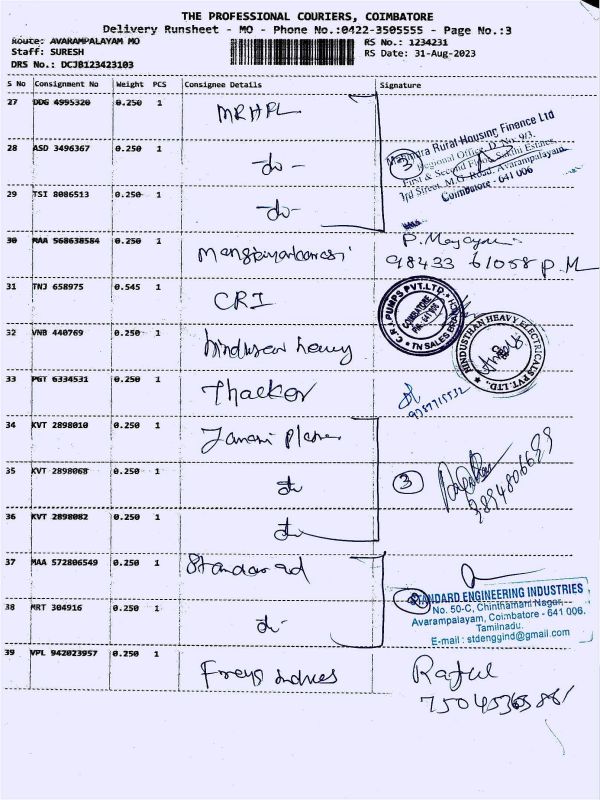 THE PROFESSIONAL COURIERS, COIMBATORE
Delivery Runsheet - MO - Phone No.:0422-3505555 - Page No.:3
Route: AVARAMPALAYAM MO
RS No.: 1234231
Staff: SURESH
RS Date: 31-Aug-2023
DRS No.: DCJB123423103
S No Consignment No Weight PCS Consignee Details Signature
27 DDG 4995320 0.250 1 MRHFL
28 ASD 3496367 0.250 1 -do-
29 TSI 8086513 0.250 1 -do-
Mahindra Rural Housing Finance Ltd
Regional Office, D. No. 9/3,
First & Second Floor, Sakthi Estates,
3rd Street, M.G. Road, Avarampalayam,
Coimbatore - 641 006
3
30 MAA 568638584 0.250 1
98433 61058 P.M
31 TNJ 658975 0.545 1 CRI
C.R.I. PUMPS PVT.LTD.,
COIMBATORE
PIN: 641 006
TN SALES
32 VNB 440769 0.250 1 hindusan heavy
HINDUSTHAN HEAVY ELECTRICALS PVT. LTD.,
33 PGT 6334531 0.250 1 Thacker
34 KVT 2898010 0.250 1
35 KVT 2898068 0.250 1 do
3
9894806689
36 KVT 2898082 0.250 1 do
37 MAA 572806549 0.250 1 Standarad
38 MRT 304916 0.250 1 do-
STANDARD ENGINEERING INDUSTRIES
No. 50-C, Chinthamani Nagar,
Avarampalayam, Coimbatore - 641 006.
Tamilnadu.
E-mail : stdenggind@gmail.com
39 VPL 942023957 0.250 1
Rafiul